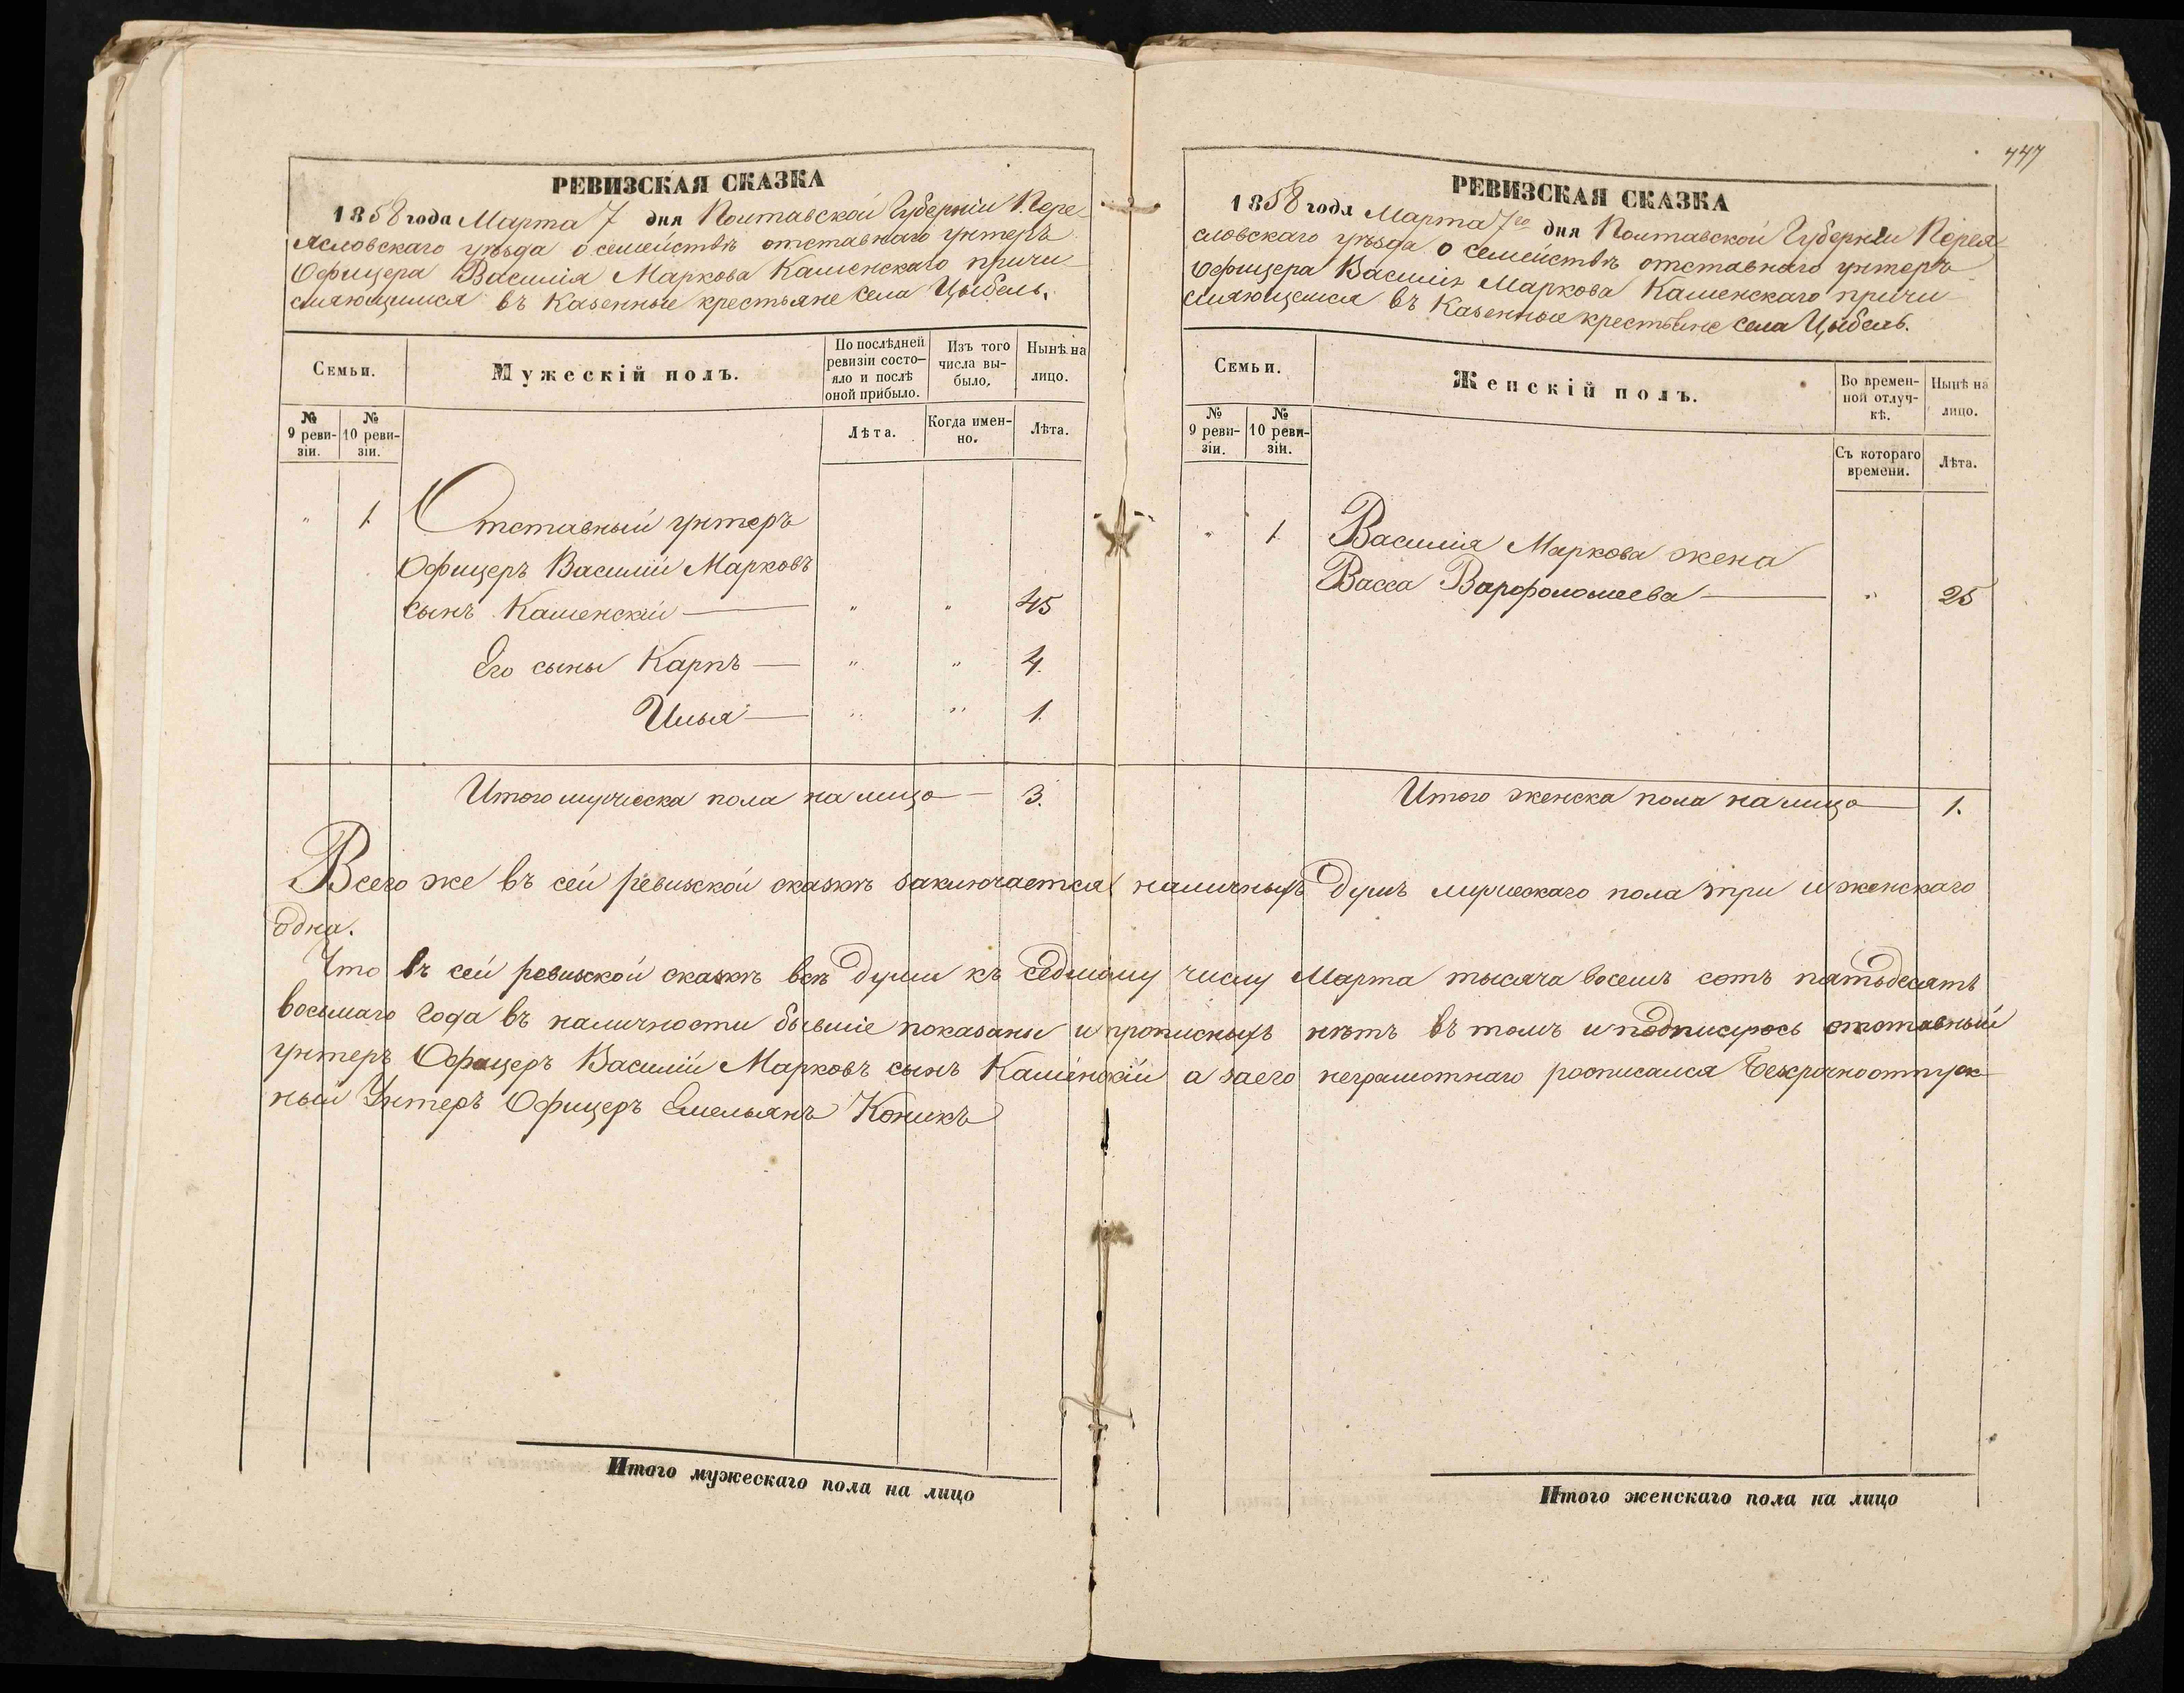 РЕВИЗСКАЯ СКАЗКА
1858 года Марта 7 дня Полтавской Губерніи Пере-
ясловскаго уѣзда о семействѣ отставнаго унтеръ
Офицера Василія Маркова Каменскаго причи-
сляющимся въ Казенные крестьяне села Цыбель.
Семьи.
Мужескій полъ.
По послѣдней
ревизіи состо-
яло и послѣ
оной прибыло.
Изъ того
числа вы-
было.
Нынѣ на
лицо.
№
9 реви-
зіи.
№
10 реви-
зіи.
Лѣта.
Когда имен-
но.
Лѣта.
" 1. Отставный унтеръ
Офицеръ Василій Марковъ
сынъ Каменскій — " " 45
Его сыны Карпъ — " " 4.
Илья — " " 1.
Итого мужеска пола на лицо — 3.
447
РЕВИЗСКАЯ СКАЗКА
1858 года Марта 7го дня Полтавской Губерніи Перея-
словскаго уѣзда о семействѣ отставнаго унтеръ
Офицера Василія Маркова Каменскаго причи-
сляющемся въ Казенные крестьяне села Цыбель.
Семьи.
Женскій полъ.
Во времен-
ной отлуч-
кѣ.
Нынѣ на
лицо.
№
9 реви-
зіи.
№
10 реви-
зіи.
Съ котораго
времени.
Лѣта.
" 1. Василія Маркова жена
Васса Варфоломеева — " 25
Итого женска пола на лицо — 1.
Всего же въ сей ревизской сказкѣ заключается наличныхъ душъ мужескаго пола три и женскаго
одна.
Что въ сей ревизской сказкѣ всѣ души къ седмому числу Марта тысяча восемь сотъ пятьдесятъ
восьмаго года въ наличности бывшіе показаны и прописныхъ нѣтъ въ томъ и подписуюсь отставный
унтеръ Офицеръ Василій Марковъ сынъ Каменскій а за его неграмотнаго росписался Безсрочноотпуск-
ный Унтеръ Офицеръ Емельянъ Коникъ
Итого мужескаго пола на лицо
Итого женскаго пола на лицо